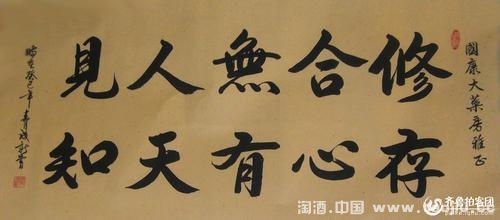 國康大藥房雅正
修合無人見
存心有天知
癸巳年
淘酒.中国
齐鲁拍客团